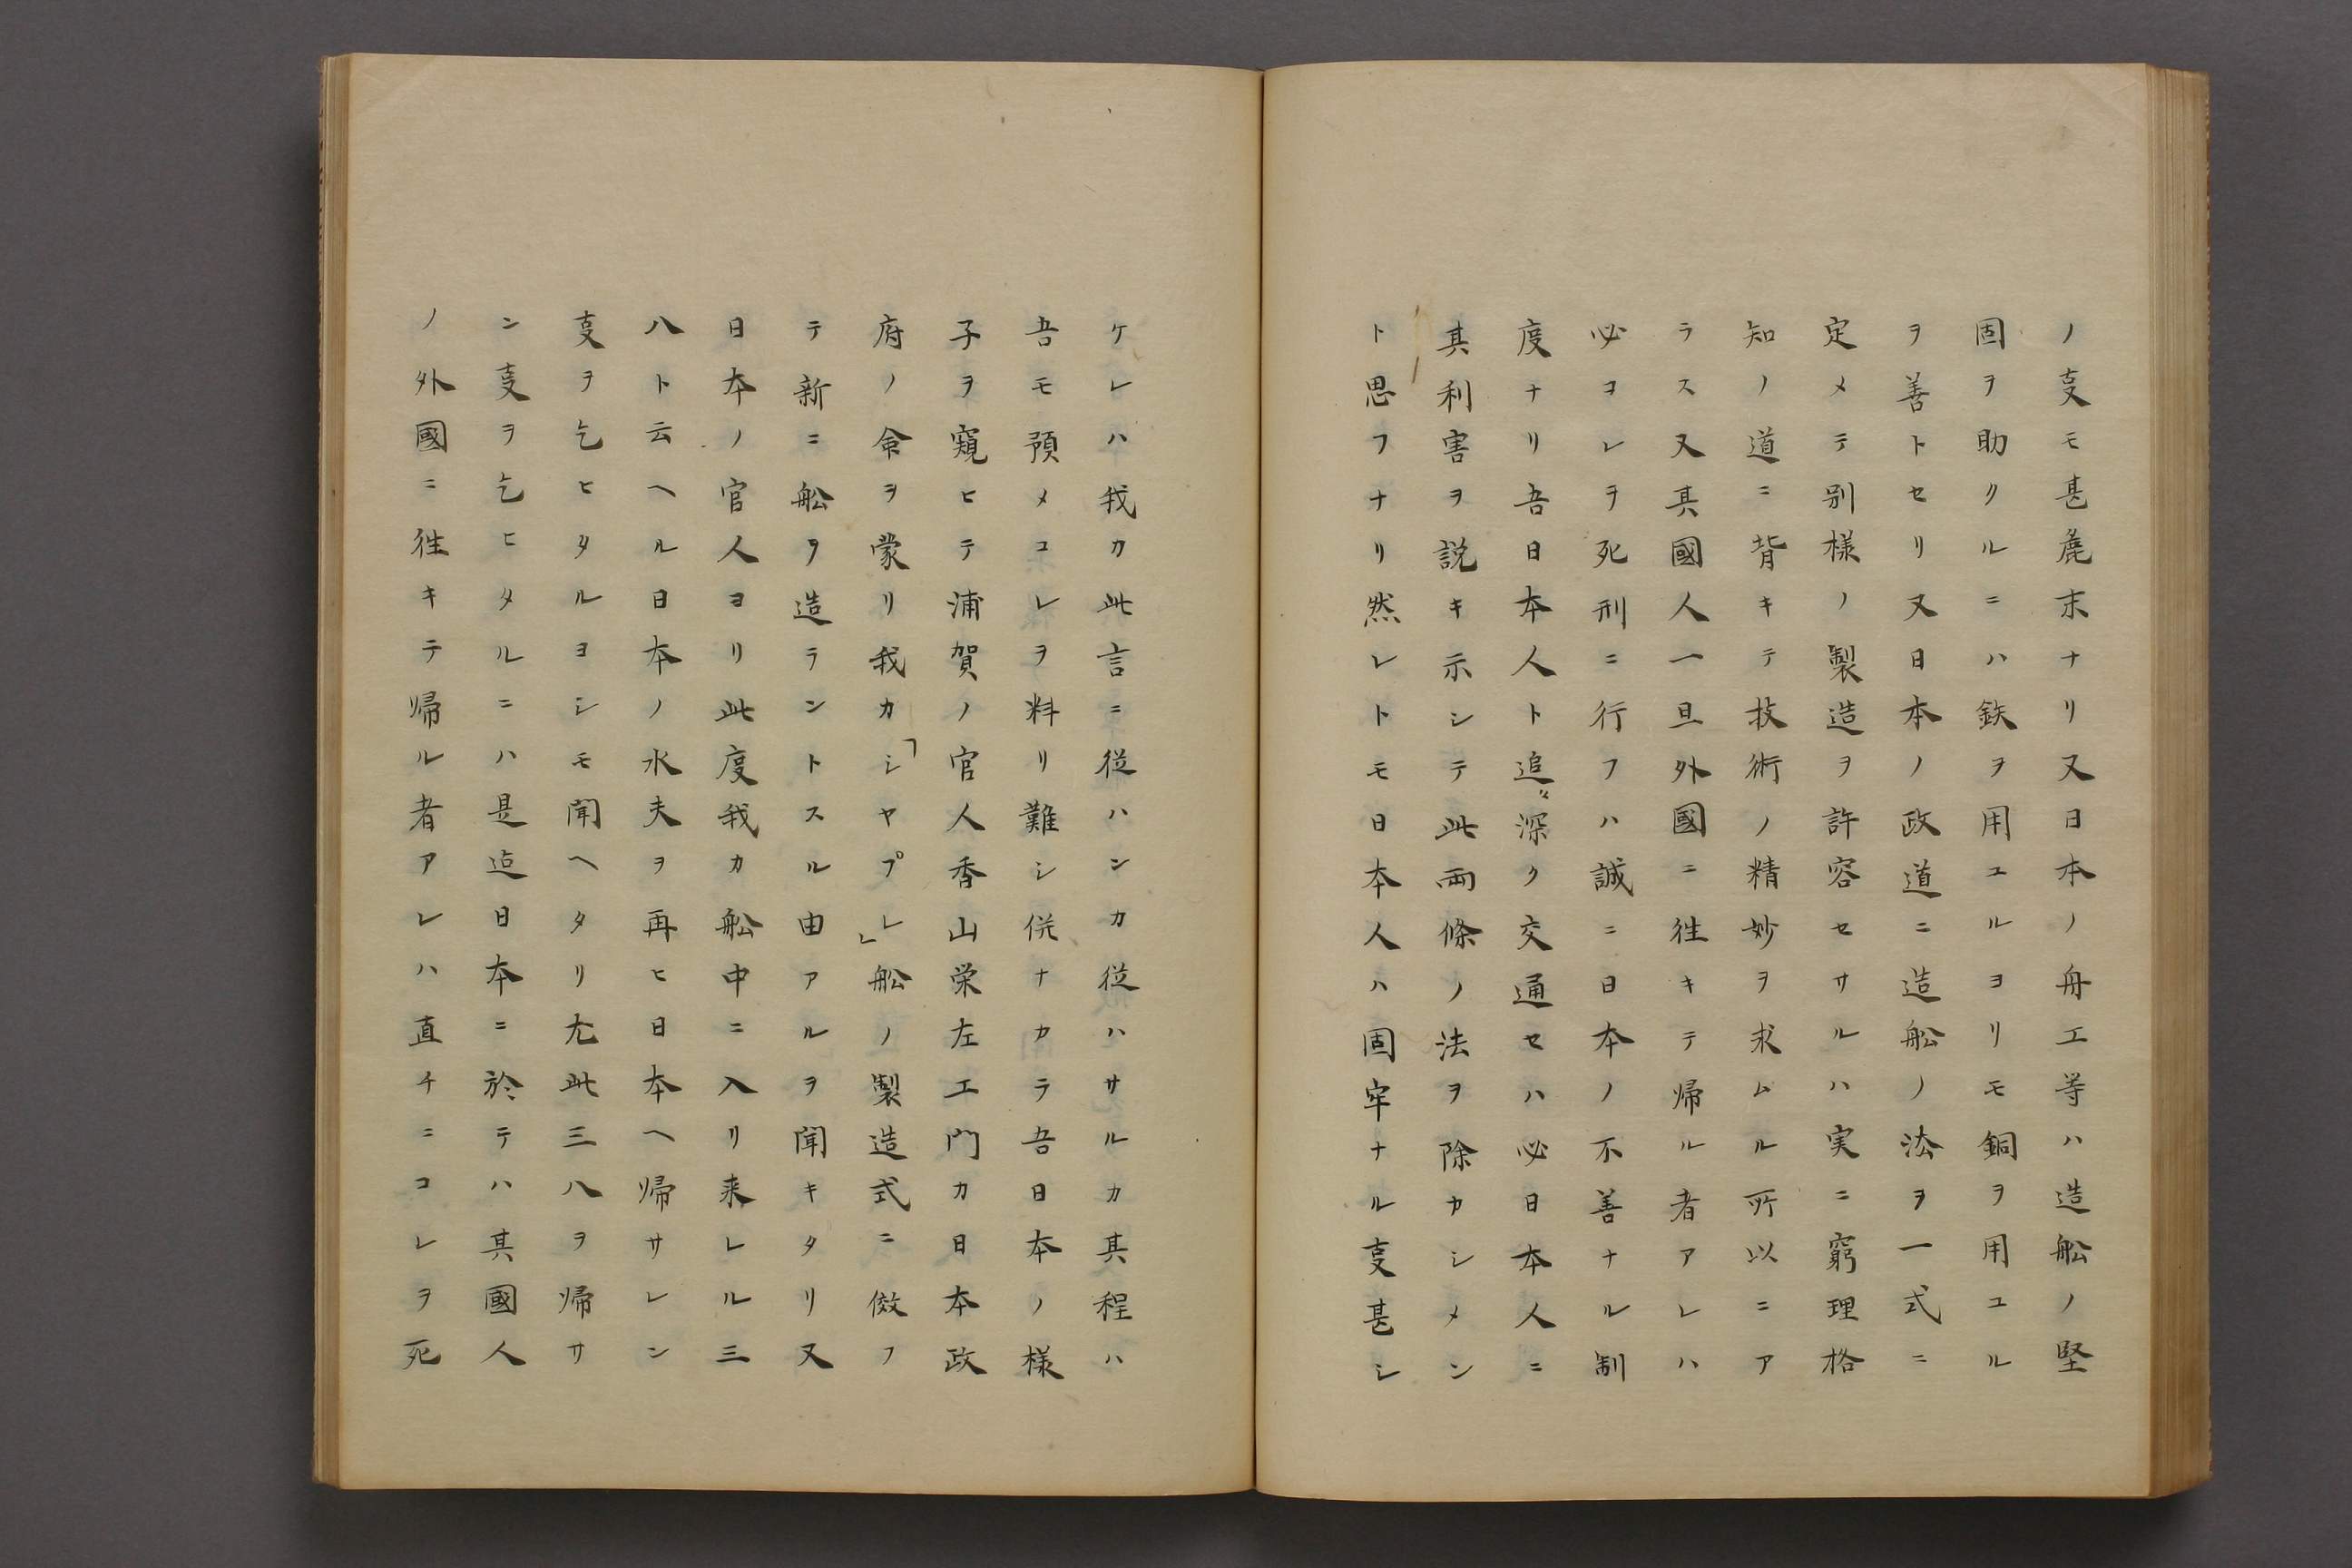 ノ叓モ甚麁末ナリ又日本ノ舟工等ハ造舩ノ堅
固ヲ助クルニハ鉄ヲ用ユルヨリモ銅ヲ用ユル
ヲ善トセリ又日本ノ政道ニ造舩ノ法ヲ一式ニ
定メテ別様ノ製造ヲ許容セサルハ実ニ窮理格
知ノ道ニ背キテ技術ノ精妙ヲ求ムル所以ニア
ラス又其國人一旦外國ニ徃キテ帰ル者アレハ
必コレヲ死刑ニ行フハ誠ニ日本ノ不善ナル制
度ナリ吾日本人ト追々深ク交通セハ必日本人ニ
其利害ヲ説キ示シテ此両條ノ法ヲ除カシメン
ト思フナリ然レトモ日本人ハ固牢ナル叓甚シ
ケレハ我カ此言ニ従ハンカ従ハサルカ其程ハ
吾モ預メコレヲ料リ難シ併ナカラ吾日本ノ様
子ヲ窺ヒテ浦賀ノ官人香山栄左エ門カ日本政
府ノ命ヲ蒙リ我カ「シヤプレ」舩ノ製造式ニ倣フ
テ新ニ舩ヲ造ラントスル由アルヲ聞キタリ又
日本ノ官人ヨリ此度我カ舩中ニ入リ来レル三
八ト云ヘル日本ノ水夫ヲ再ヒ日本ヘ帰サレン
叓ヲ乞ヒタルヨシモ聞ヘタリ尤此三八ヲ帰サ
ン叓ヲ乞ヒタルニハ是迠日本ニ於テハ其國人
ノ外國ニ徃キテ帰ル者アレハ直チニコレヲ死